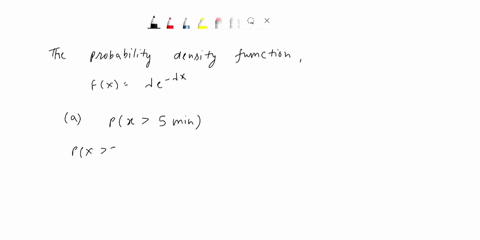 The probability density function,
f(x) = λe^{-λx}
(a) P(x > 5 min)
P(x >-